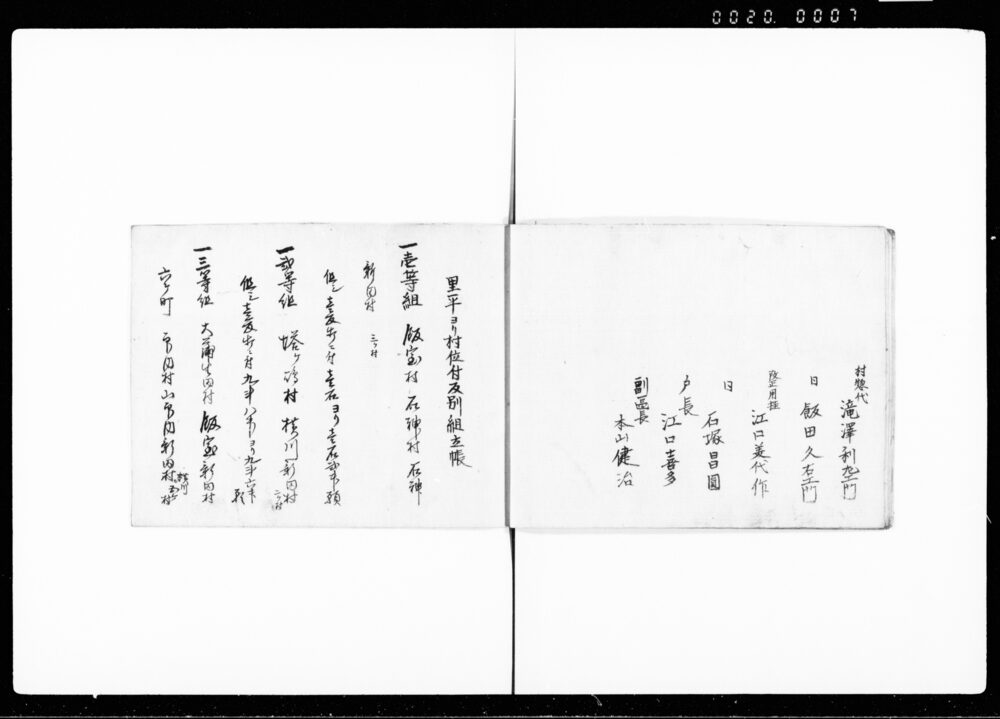 0020.0007
村惣代
滝澤利左エ門
日 飯田久右エ門
改正用掛
江口美代作
日 石塚昌圓
戸長
江口喜多
副區長
本山健治
里平ヨリ村位付及別組立帳
一壱等組 飯宝村 石神村 石神
新田村 三ヶ村
但シ壱反歩ニ付壱石ヨリ壱石弐斗
一弐等組 塔ヶ崎村 横川新田村
但シ壱反歩ニ付九斗八升ヨリ九斗六升
一三等組 大蒲生田村 飯宝新田村
六ヶ町 新田村